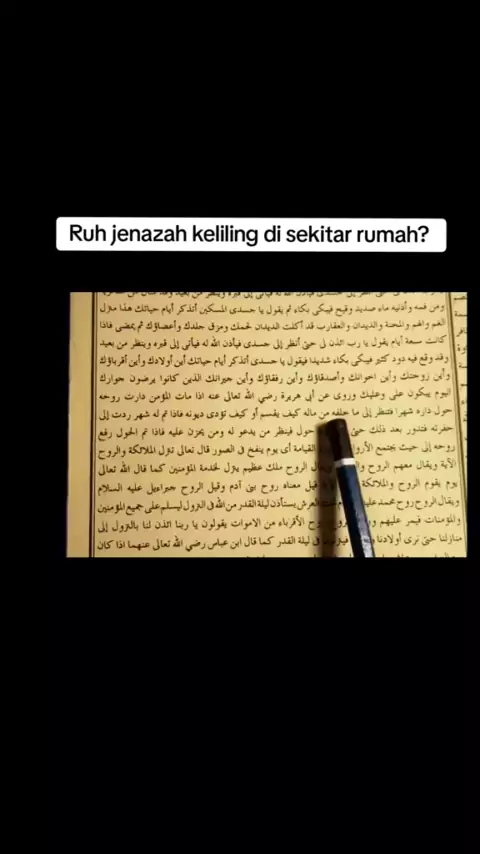 Ruh jenazah keliling di sekitar rumah?
ومن فمه وأذنيه ماء صديد وقيح فيبكى بكاء ثم يقول يا جسدى المسكين أتذكر أيام حياتك هذا منزل
الغم والهم والمحنة والديدان والعقارب قد أكلت الديدان لحمك ومزق جلدك وأعضاؤك ثم يمضى فاذا
كانت سبعة أيام يقول يا رب ائذن لى حتى أنظر إلى جسدى فيأذن الله له فيأتى إلى قبره وينظر من بعيد
وقد وقع فيه دود كثير فيبكى بكاء شديدا فيقول يا جسدى أتذكر أيام حياتك أين أولادك وأين أقرباؤك
وأين زوجتك وأين اخوانك وأصدقاؤك وأين رفقاؤك وأين جيرانك الذين كانوا يرضون جوارك
اليوم يبكون على وعليك وروى عن أبى هريرة رضي الله تعالى عنه اذا مات المؤمن دارت روحه
حول داره شهرا فتنظر إلى ما خلفه من ماله كيف يقسم أو كيف تؤدى ديونه فاذا تم له شهر ردت إلى
حفرته فتدور بعد ذلك حتى حول فينظر من يدعو له ومن يحزن عليه فاذا تم الحول رفع
روحه إلى حيث يجتمع الأرواح القيامة أى يوم ينفخ فى الصور قال تعالى تنزل الملائكة والروح
الآية ويقال معهم الروح الروح ملك عظيم ينزل لخدمة المؤمنين كما قال الله تعالى
يوم يقوم الروح والملائكة قيل معناه روح بنى آدم وقيل الروح جبراءيل عليه السلام
ويقال الروح روح محمد العرش يستأذن ليلة القدر من الله فى النزول ليسلم على جميع المؤمنين
والمؤمنات فيمر عليهم روح الأقرباء من الاموات يقولون يا ربنا ائذن لنا بالنزول إلى
منازلنا حتى نرى أولادنا فى ليلة القدر كما قال ابن عباس رضي الله تعالى عنهما اذا كان